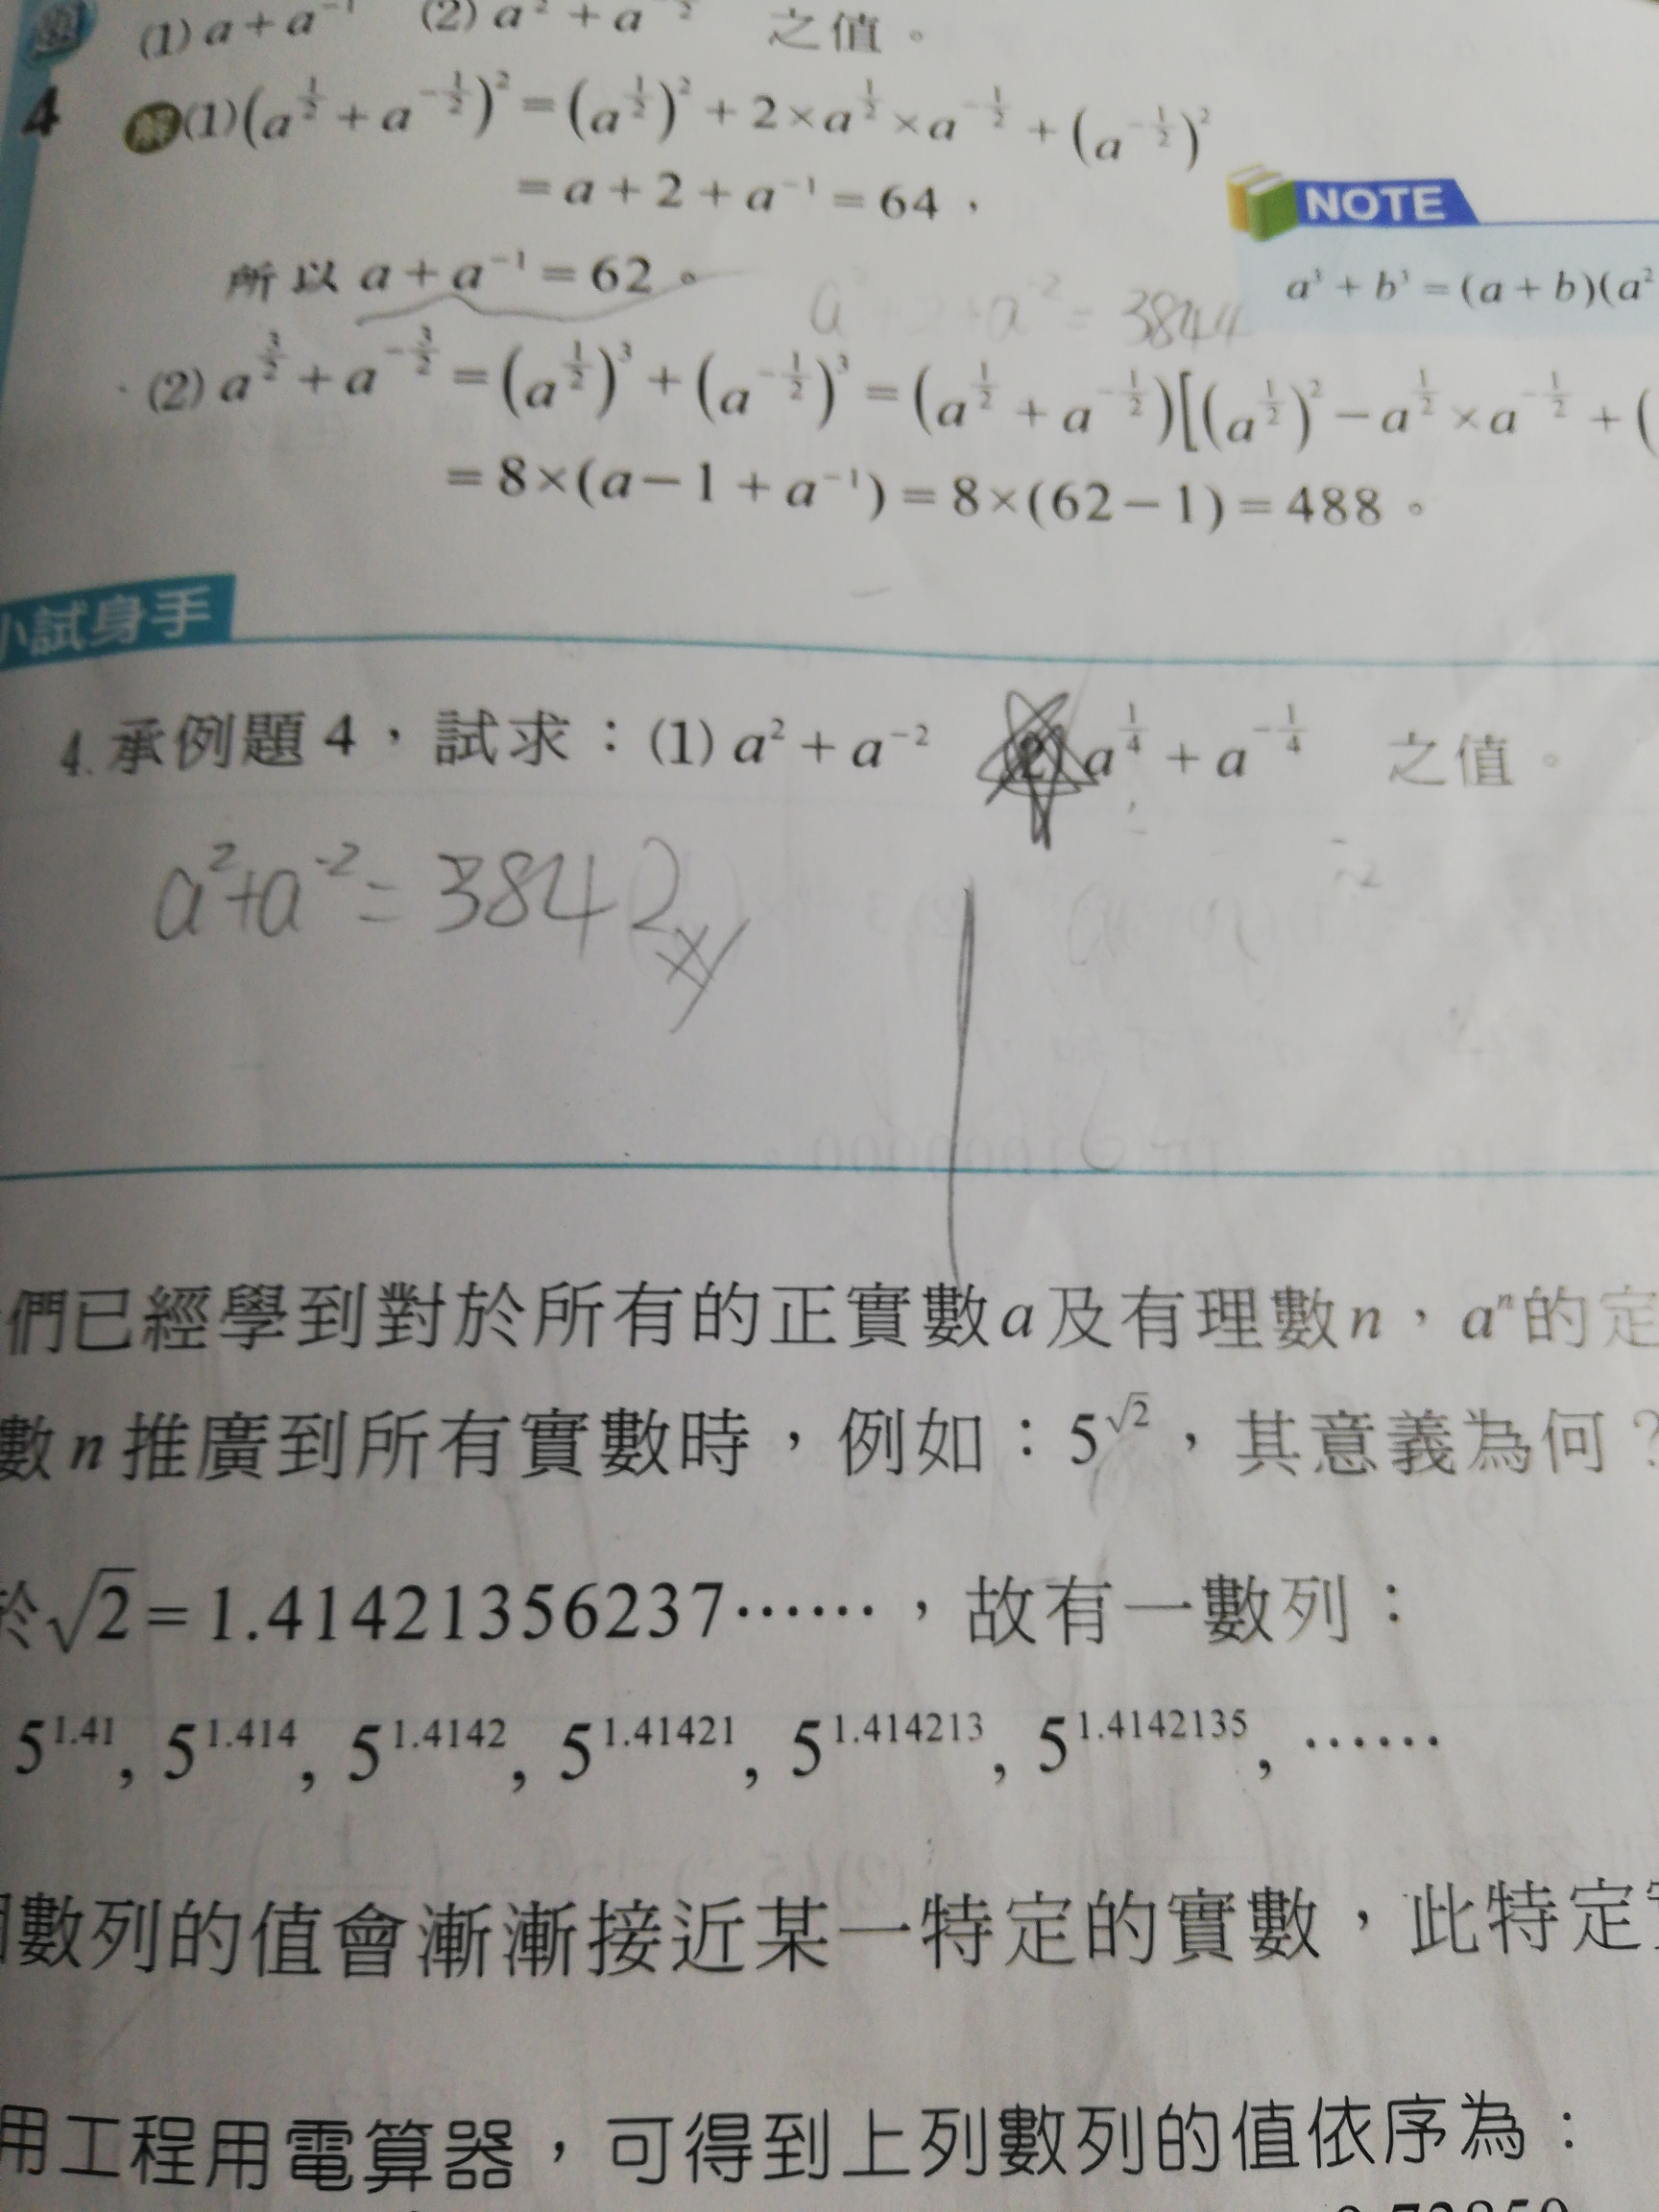 (1) a + a⁻¹ (2) a^{3/2} + a^{-3/2} 之值。
4 解 (1) (a^{1/2} + a^{-1/2})² = (a^{1/2})² + 2 × a^{1/2} × a^{-1/2} + (a^{-1/2})²
= a + 2 + a⁻¹ = 64，
NOTE
所以 a + a⁻¹ = 62。
a³ + b³ = (a + b)(a²
a² + 2 + a⁻² = 3844
(2) a^{3/2} + a^{-3/2} = (a^{1/2})³ + (a^{-1/2})³ = (a^{1/2} + a^{-1/2})[(a^{1/2})² − a^{1/2} × a^{-1/2} + (
= 8 × (a − 1 + a⁻¹) = 8 × (62 − 1) = 488。
小試身手
4. 承例題 4，試求：(1) a² + a⁻² (2) a^{1/4} + a^{-1/4} 之值。
a² + a⁻² = 3842
們已經學到對於所有的正實數 a 及有理數 n，aⁿ 的定
數 n 推廣到所有實數時，例如：5^{√2}，其意義為何？
於 √2 = 1.41421356237……，故有一數列：
5^{1.41}, 5^{1.414}, 5^{1.4142}, 5^{1.41421}, 5^{1.414213}, 5^{1.4142135}, ……
數列的值會漸漸接近某一特定的實數，此特定
用工程用電算器，可得到上列數列的值依序為：